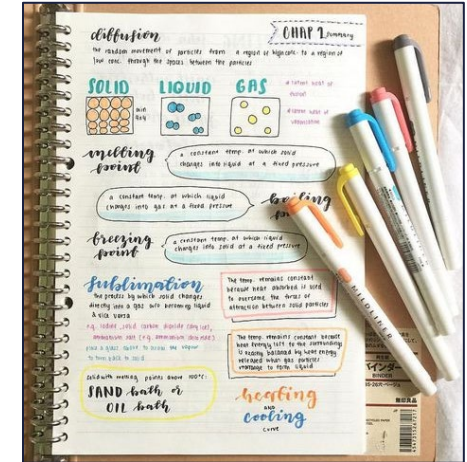 diffusion
CHAP 1 Summary
the random movement of particles from a region of high conc. to a region of
low conc. through the spaces between the particles
SOLID LIQUID GAS
melting
point
a constant temp. at which solid
changes into liquid at a fixed pressure
a constant temp. at which liquid
changes into gas at a fixed pressure
boiling
freezing
point
a constant temp. at which liquid
changes into solid at a fixed pressure
Sublimation
the process by which solid changes
directly into a gas w/o becoming liquid
& vice versa
e.g. iodine, solid carbon dioxide (dry ice),
place a glass
to turn back to solid
solid with melting points above 100°C:
SAND bath or
OIL bath
The temp. remains constant
because heat absorbed is used
to overcome the forces of
attraction between solid particles
The temp. remains constant because
heat energy lost to the surroundings
is
balanced by heat energy
released when
particles
to form liquid
heating
AND
cooling
curve
MILDLINER
バインダー
BINDER
無印良品